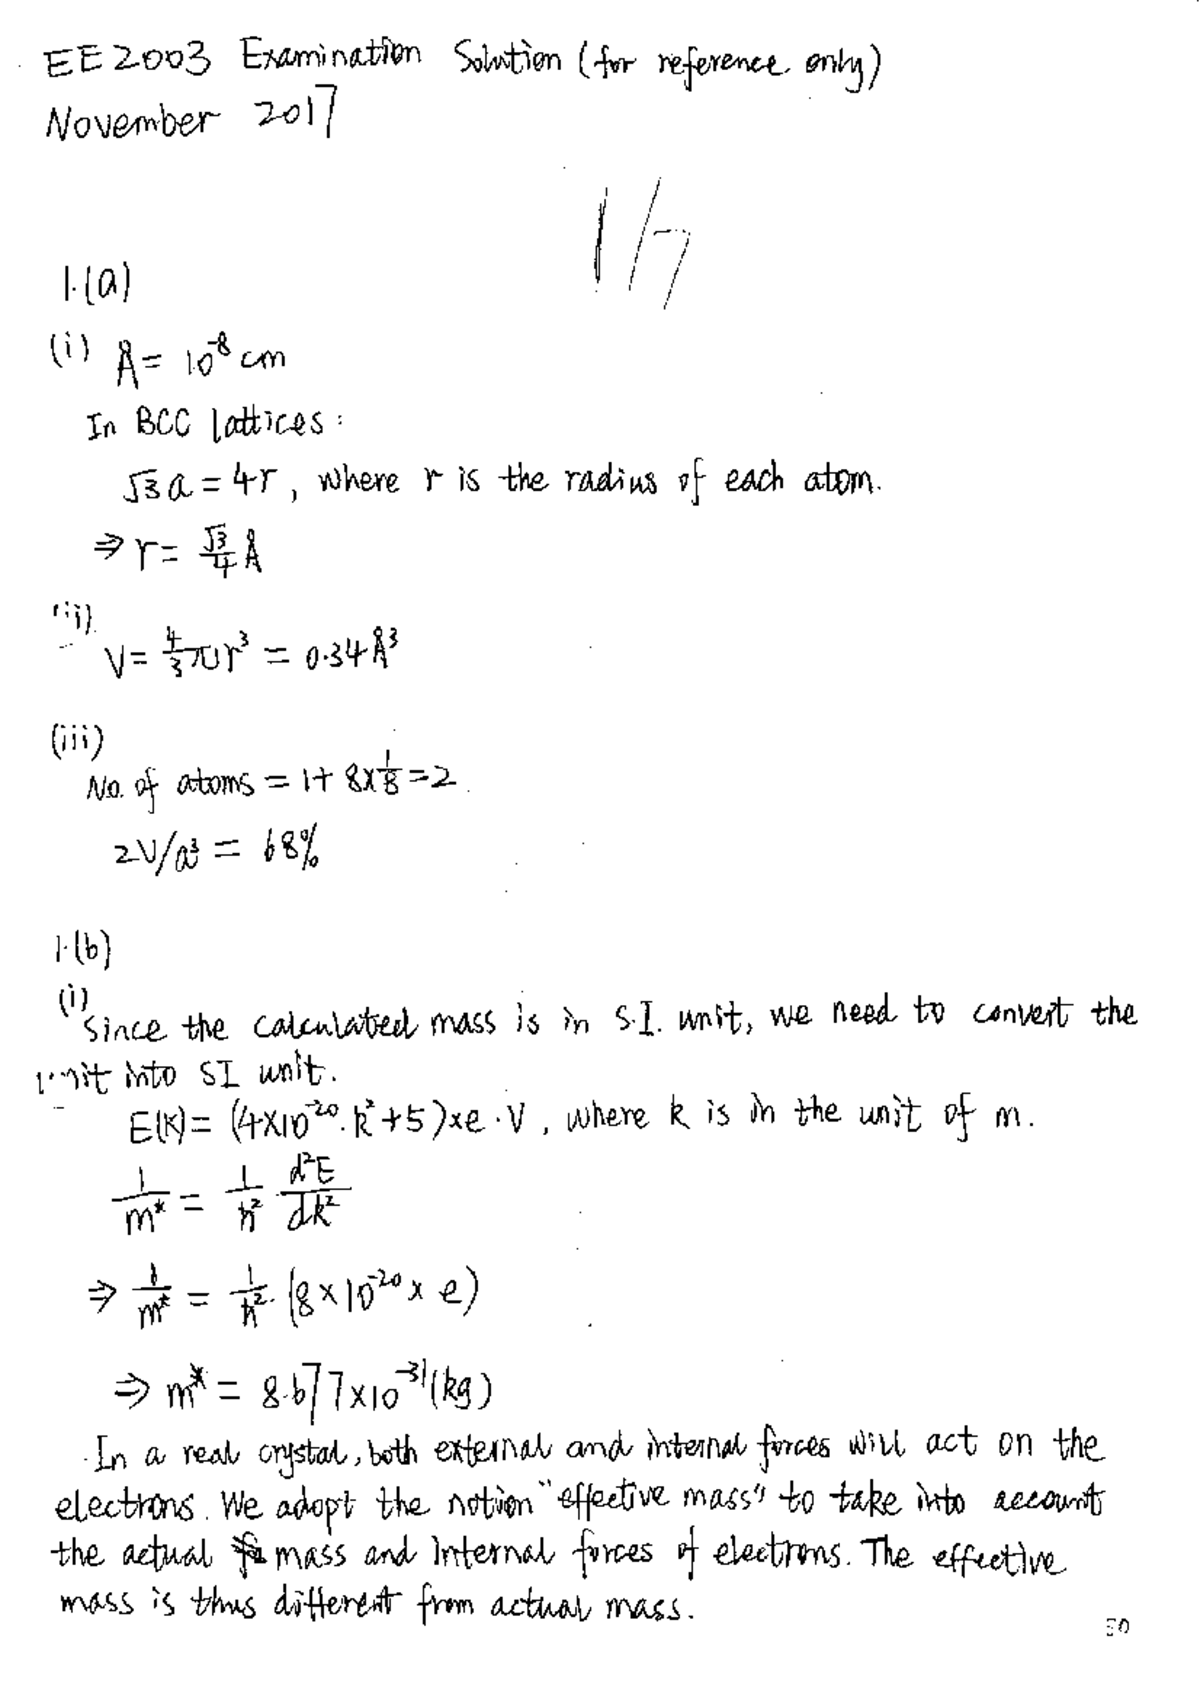 EE2003 Examination Solution (for reference only)
November 2017
1.(a)
(i) Å = 10⁻⁸ cm
In BCC lattices:
√3 a = 4r, where r is the radius of each atom.
⇒ r = √3/4 Å
(ii)
V = 4/3 πr³ = 0.34 Å³
(iii)
No. of atoms = 1 + 8×1/8 = 2
2V/a³ = 68%
1.(b)
(i) Since the calculated mass is in S.I. unit, we need to convert the
unit into SI unit.
E(k) = (4×10⁻²⁰·k²+5)×e·V, where k is in the unit of m.
1/m* = 1/ħ² d²E/dk²
⇒ 1/m* = 1/ħ²·(8×10⁻²⁰×e)
⇒ m* = 8.677×10⁻³¹(kg)
In a real crystal, both external and internal forces will act on the
electrons. We adopt the notion "effective mass" to take into account
the actual mass and internal forces of electrons. The effective
mass is thus different from actual mass.
50